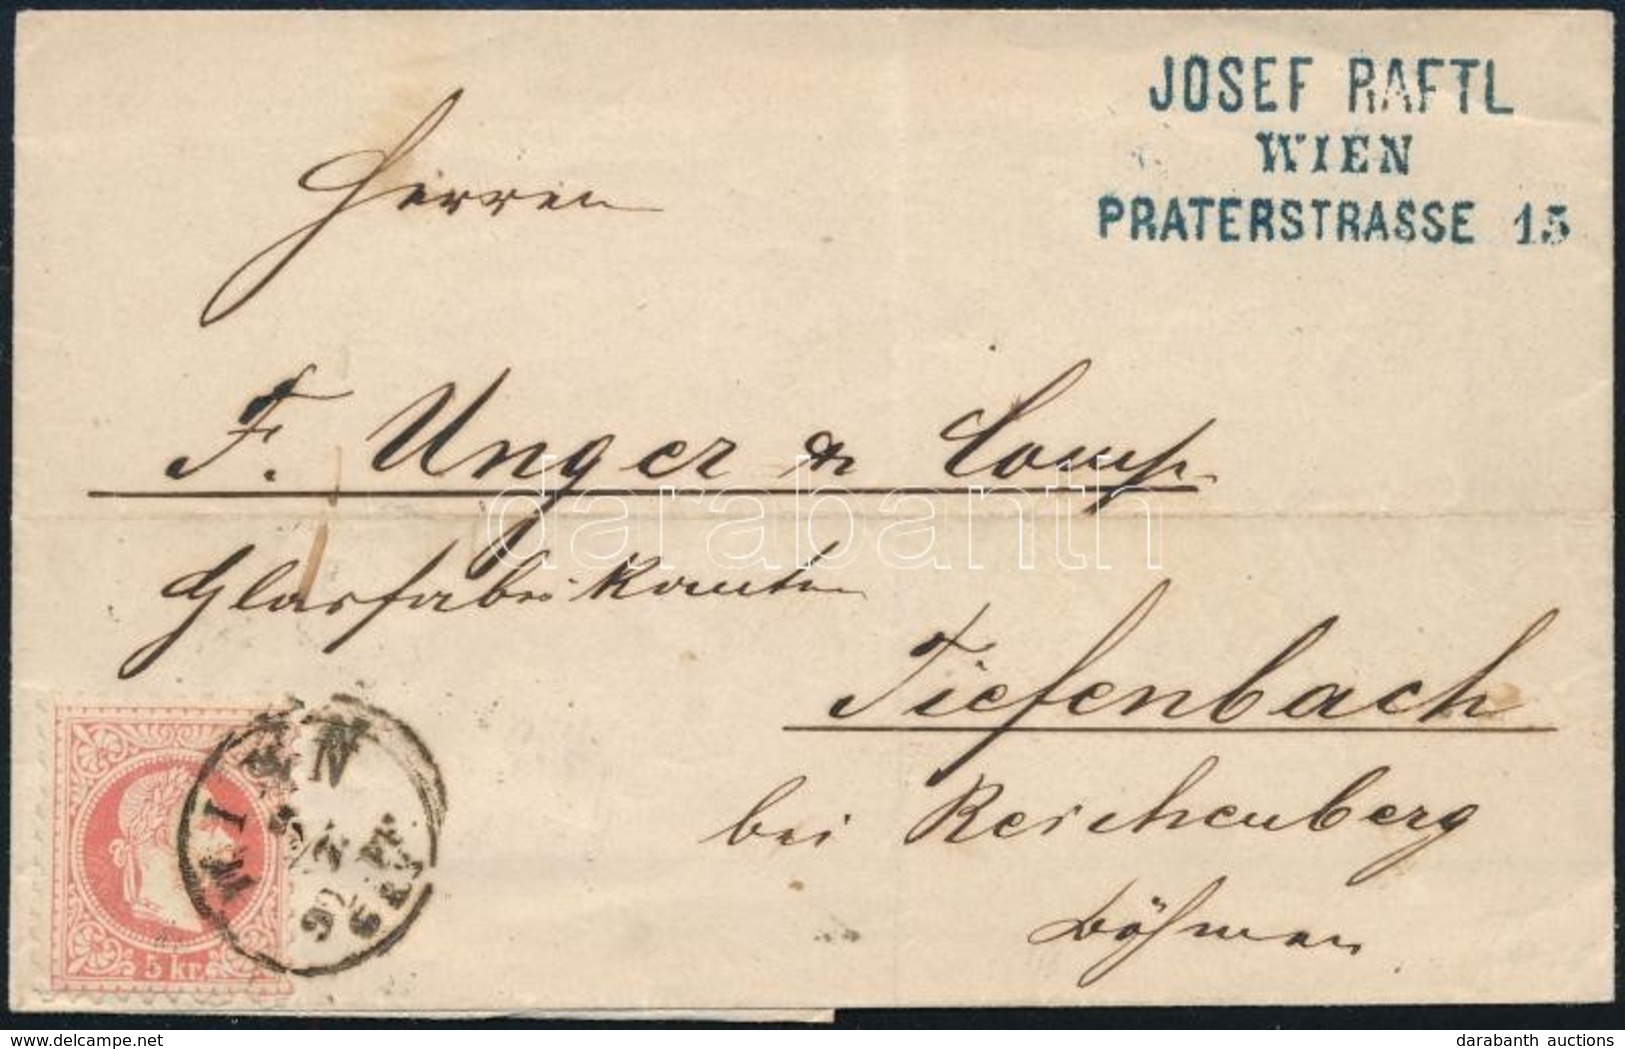 JOSEF RAFTL
WIEN
PRATERSTRASSE 15
Herren
F. Unger & Comp
Glasfabrikanten
Tiefenbach
bei Reichenberg
Böhmen
WIEN
5 kr.
darabanth
delcampe.net
darabanth auctions